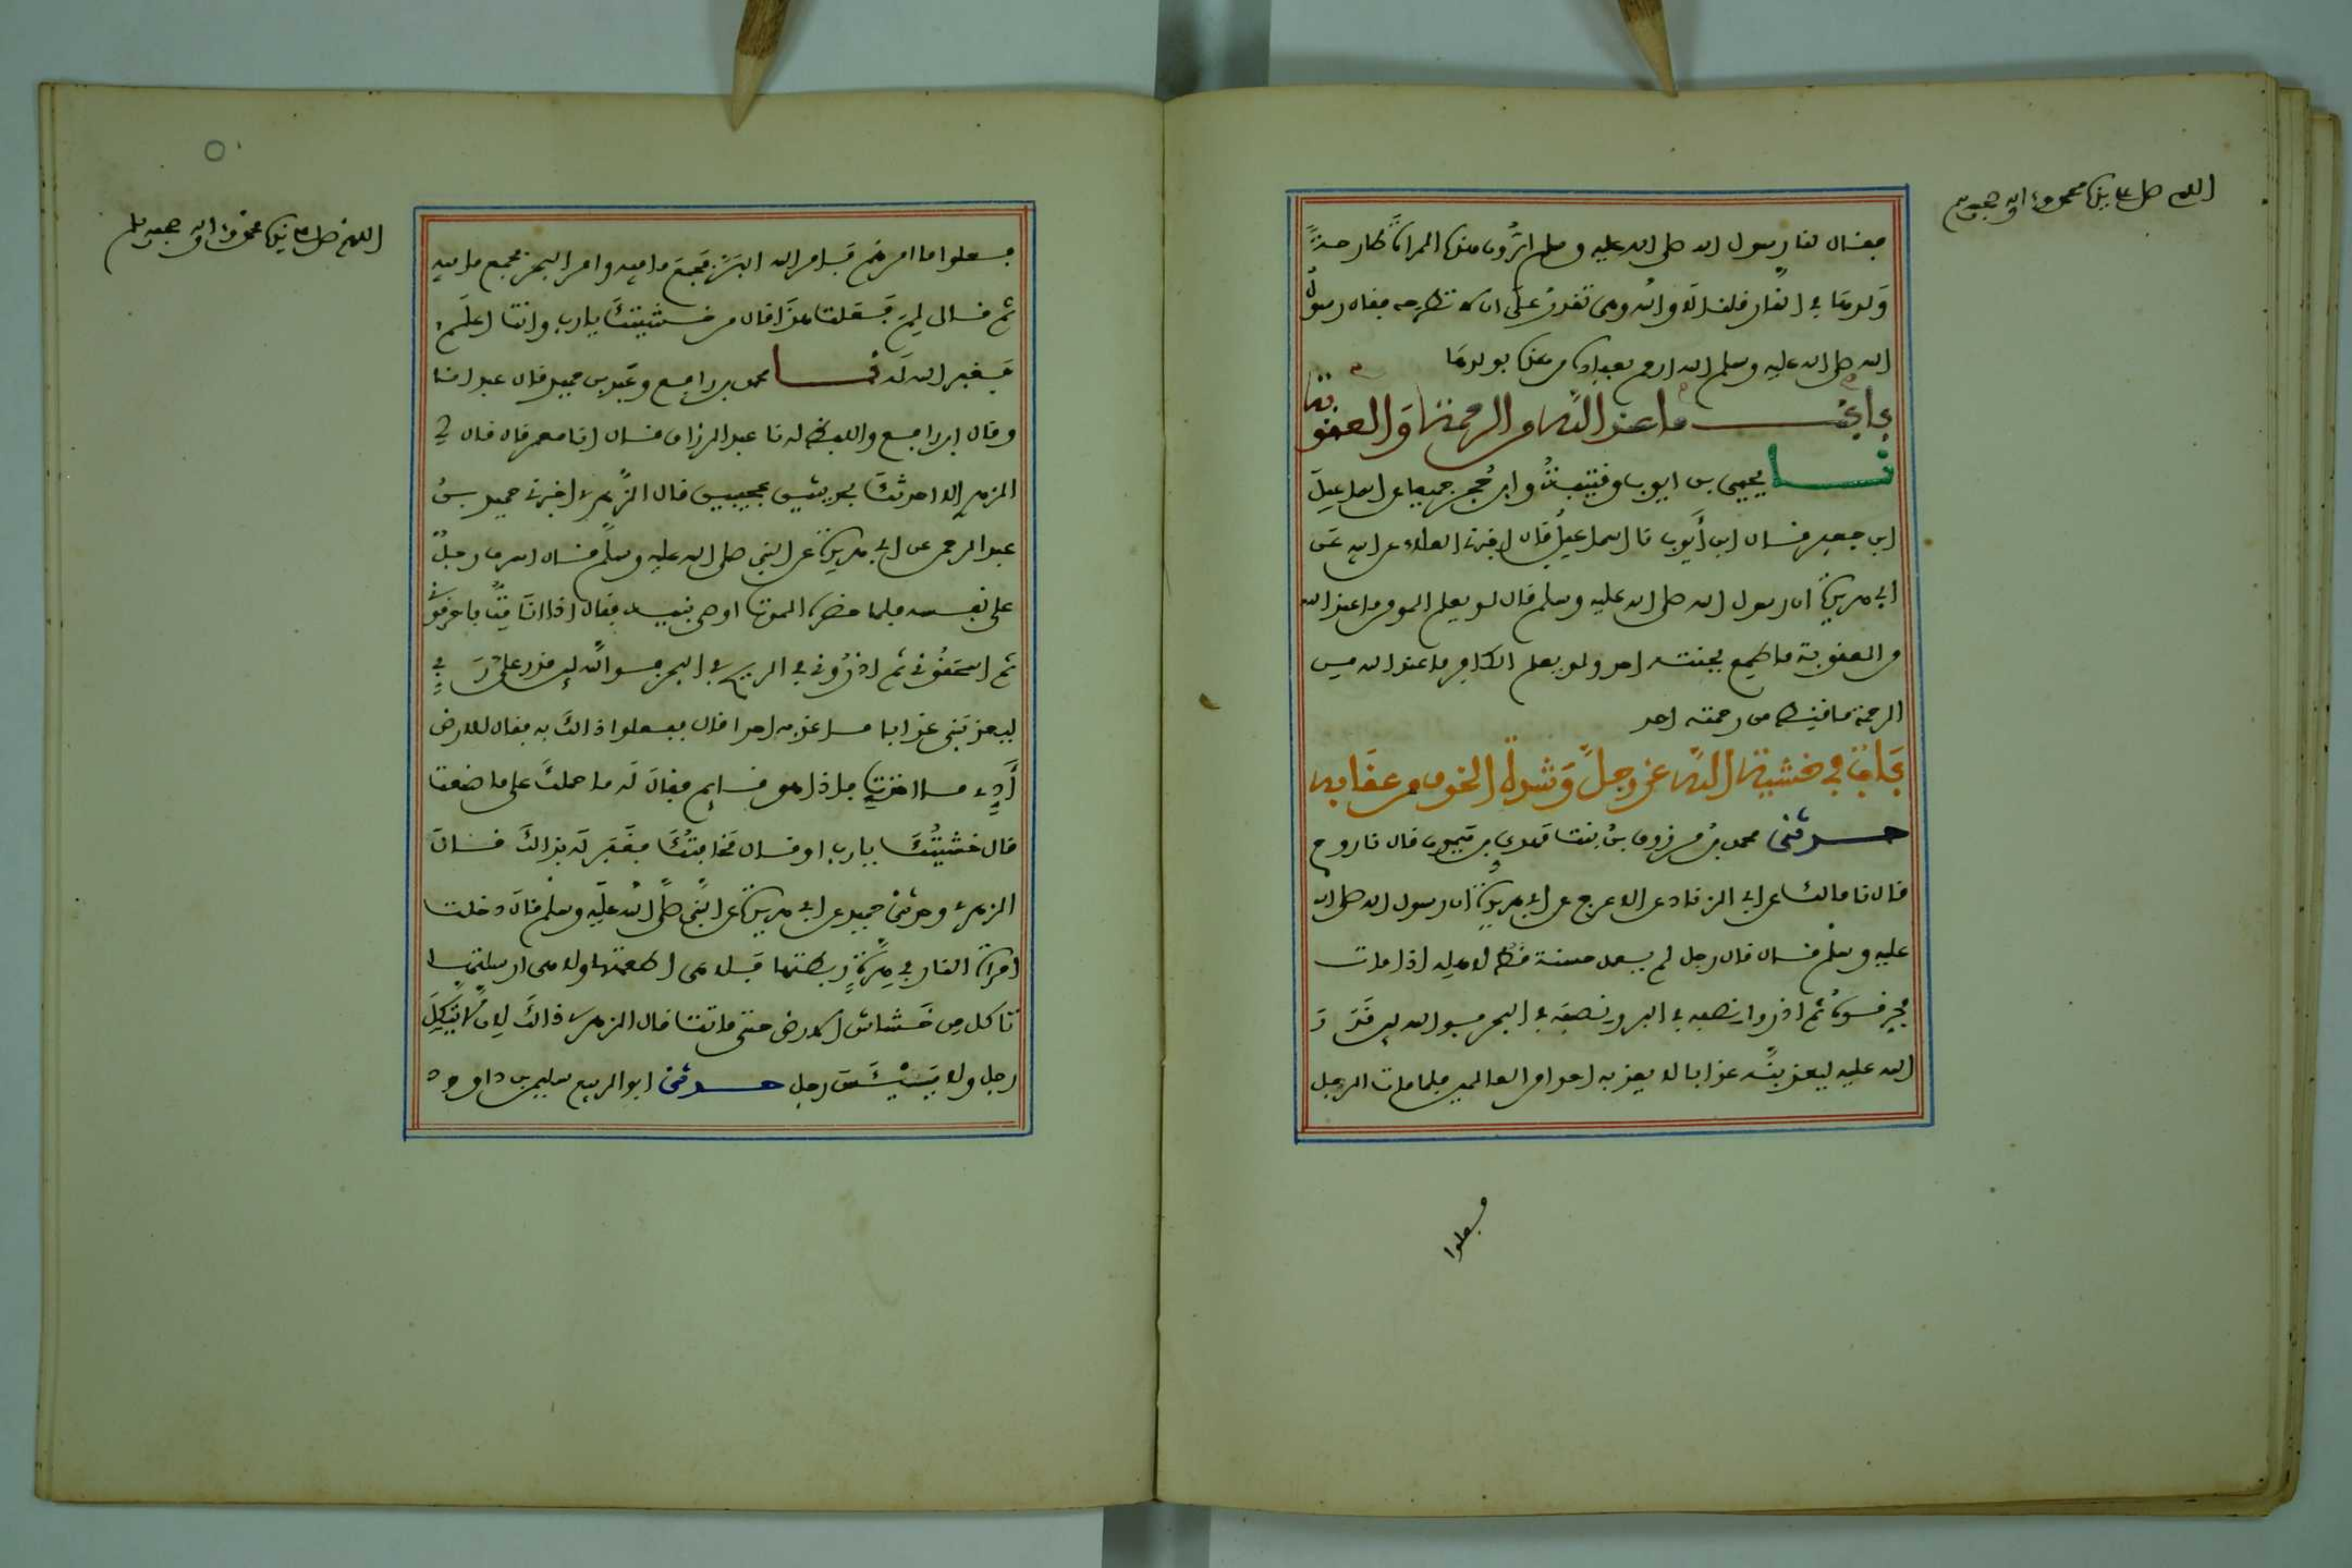 اللهم صل على نبيك محمد واله وصحبه وسلم
فقال لنا رسول الله صلى الله عليه وسلم اترون هذه المراة طارحة
ولدها في النار قلنا لا والله وهي تقدر على ان لا تطرحه فقال رسول
الله صلى الله عليه وسلم الله ارحم بعباده من هذه بولدها
باب ما عند الله من الرحمة والعقوبة
نا يحيى بن ايوب وقتيبة وابن حجر جميعا عن اسماعيل
ابن جعفر قال ابن أيوب نا اسماعيل قال اخبرني العلاء عن ابيه عن
ابي هريرة ان رسول الله صلى الله عليه وسلم قال لو يعلم المومن ما عند الله
من العقوبة ما طمع بجنته احد ولو يعلم الكافر ما عند الله من
الرحمة ما قنط من رحمته احد
باب في خشية الله عز وجل وشدة الخوف من عقابه
حدثني محمد بن مرزوق بن بنت مهدي بن ميمون قال نا روح
قال نا مالك عن ابي الزناد عن الاعرج عن ابي هريرة ان رسول الله صلى الله
عليه وسلم قال قال رجل لم يعمل حسنة قط لاهله اذا مات
فحرقوه ثم اذروا نصفه في البر ونصفه في البحر فوالله لين قدر
الله عليه ليعذبنه عذابا لا يعذبه احدا من العالمين فلما مات الرجل
فعلوا
اللهم صل على نبيك محمد واله وصحبه وسلم
فعلوا ما امرهم فامر الله البر فجمع ما فيه وامر البحر فجمع ما فيه
ثم قال لم فعلت هذا قال من خشيتك يارب وانت اعلم
فغفر الله له نا محمد بن رافع وعبد بن حميد قال عبد انا
وقال ابن رافع واللفظ له نا عبد الرزاق قال انا معمر قال قال لي
الزهري الا احدثك بحديثين عجيبين قال الزهري اخبرني حميد بن
عبد الرحمن عن ابي هريرة عن النبي صلى الله عليه وسلم قال اسرف رجل
على نفسه فلما حضره الموت اوصى بنيه فقال اذا انا مت فاحرقوني
ثم اسحقوني ثم اذروني في الريح في البحر فوالله لين قدر علي ربي
ليعذبني عذابا ما عذبه احدا قال ففعلوا ذالك به فقال للارض
أدي ما اخذت فاذا هو قايم فقال له ما حملك على ما صنعت
قال خشيتك يارب او قال مخافتك فغفر له بذالك قال
الزهري وحدثني حميد عن ابي هريرة عن النبي صلى الله عليه وسلم قال دخلت
امراة النار في هرة ربطتها فلا هي اطعمتها ولا هي ارسلتها
تاكل من خشاش الارض حتى ماتت قال الزهري ذالك ليلا يتكل
رجل ولا ييئس رجل حدثني ابو الربيع سليمن بن داوود